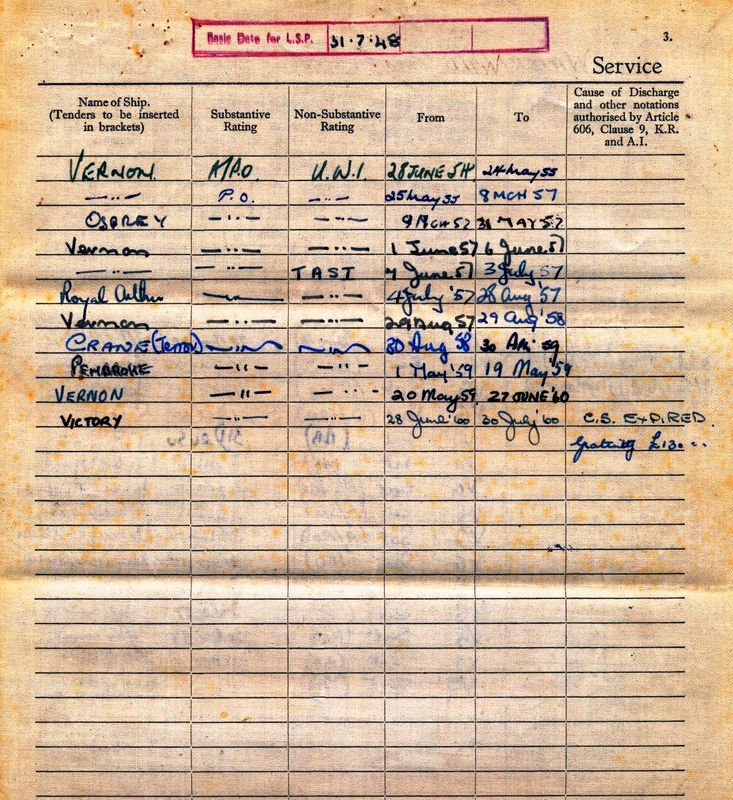 Basic Date for L.S.P. 31·7·48
3.
Service
Name of Ship. (Tenders to be inserted in brackets) Substantive Rating Non-Substantive Rating From To Cause of Discharge and other notations authorised by Article 606, Clause 9, K.R. and A.I.
VERNON. A/P.O U.W.1. 28 JUNE 54 24 May 55
—··— P.O. —··— 25 May 55 8 MCH 57
OSPREY —··— —··— 9 MCH 57 31 MAY 57
Vernon —··— —··— 1 June 57 6 June 57
—··— —··— TAS1 7 June 57 3 July 57
Royal Arthur —··— —··— 4 July '57 28 Aug '57
Vernon —··— —··— 29 Aug 57 29 Aug '58
CRANE —··— —··— 30 Aug 58 30 Apl 59
PEMBROKE —··— —··— 1 May '59 19 May '59
VERNON —··— —··— 20 May 59 27 JUNE '60
VICTORY —··— —··— 28 June '60 30 July '60 C.S. EXPIRED.
Gratuity £130